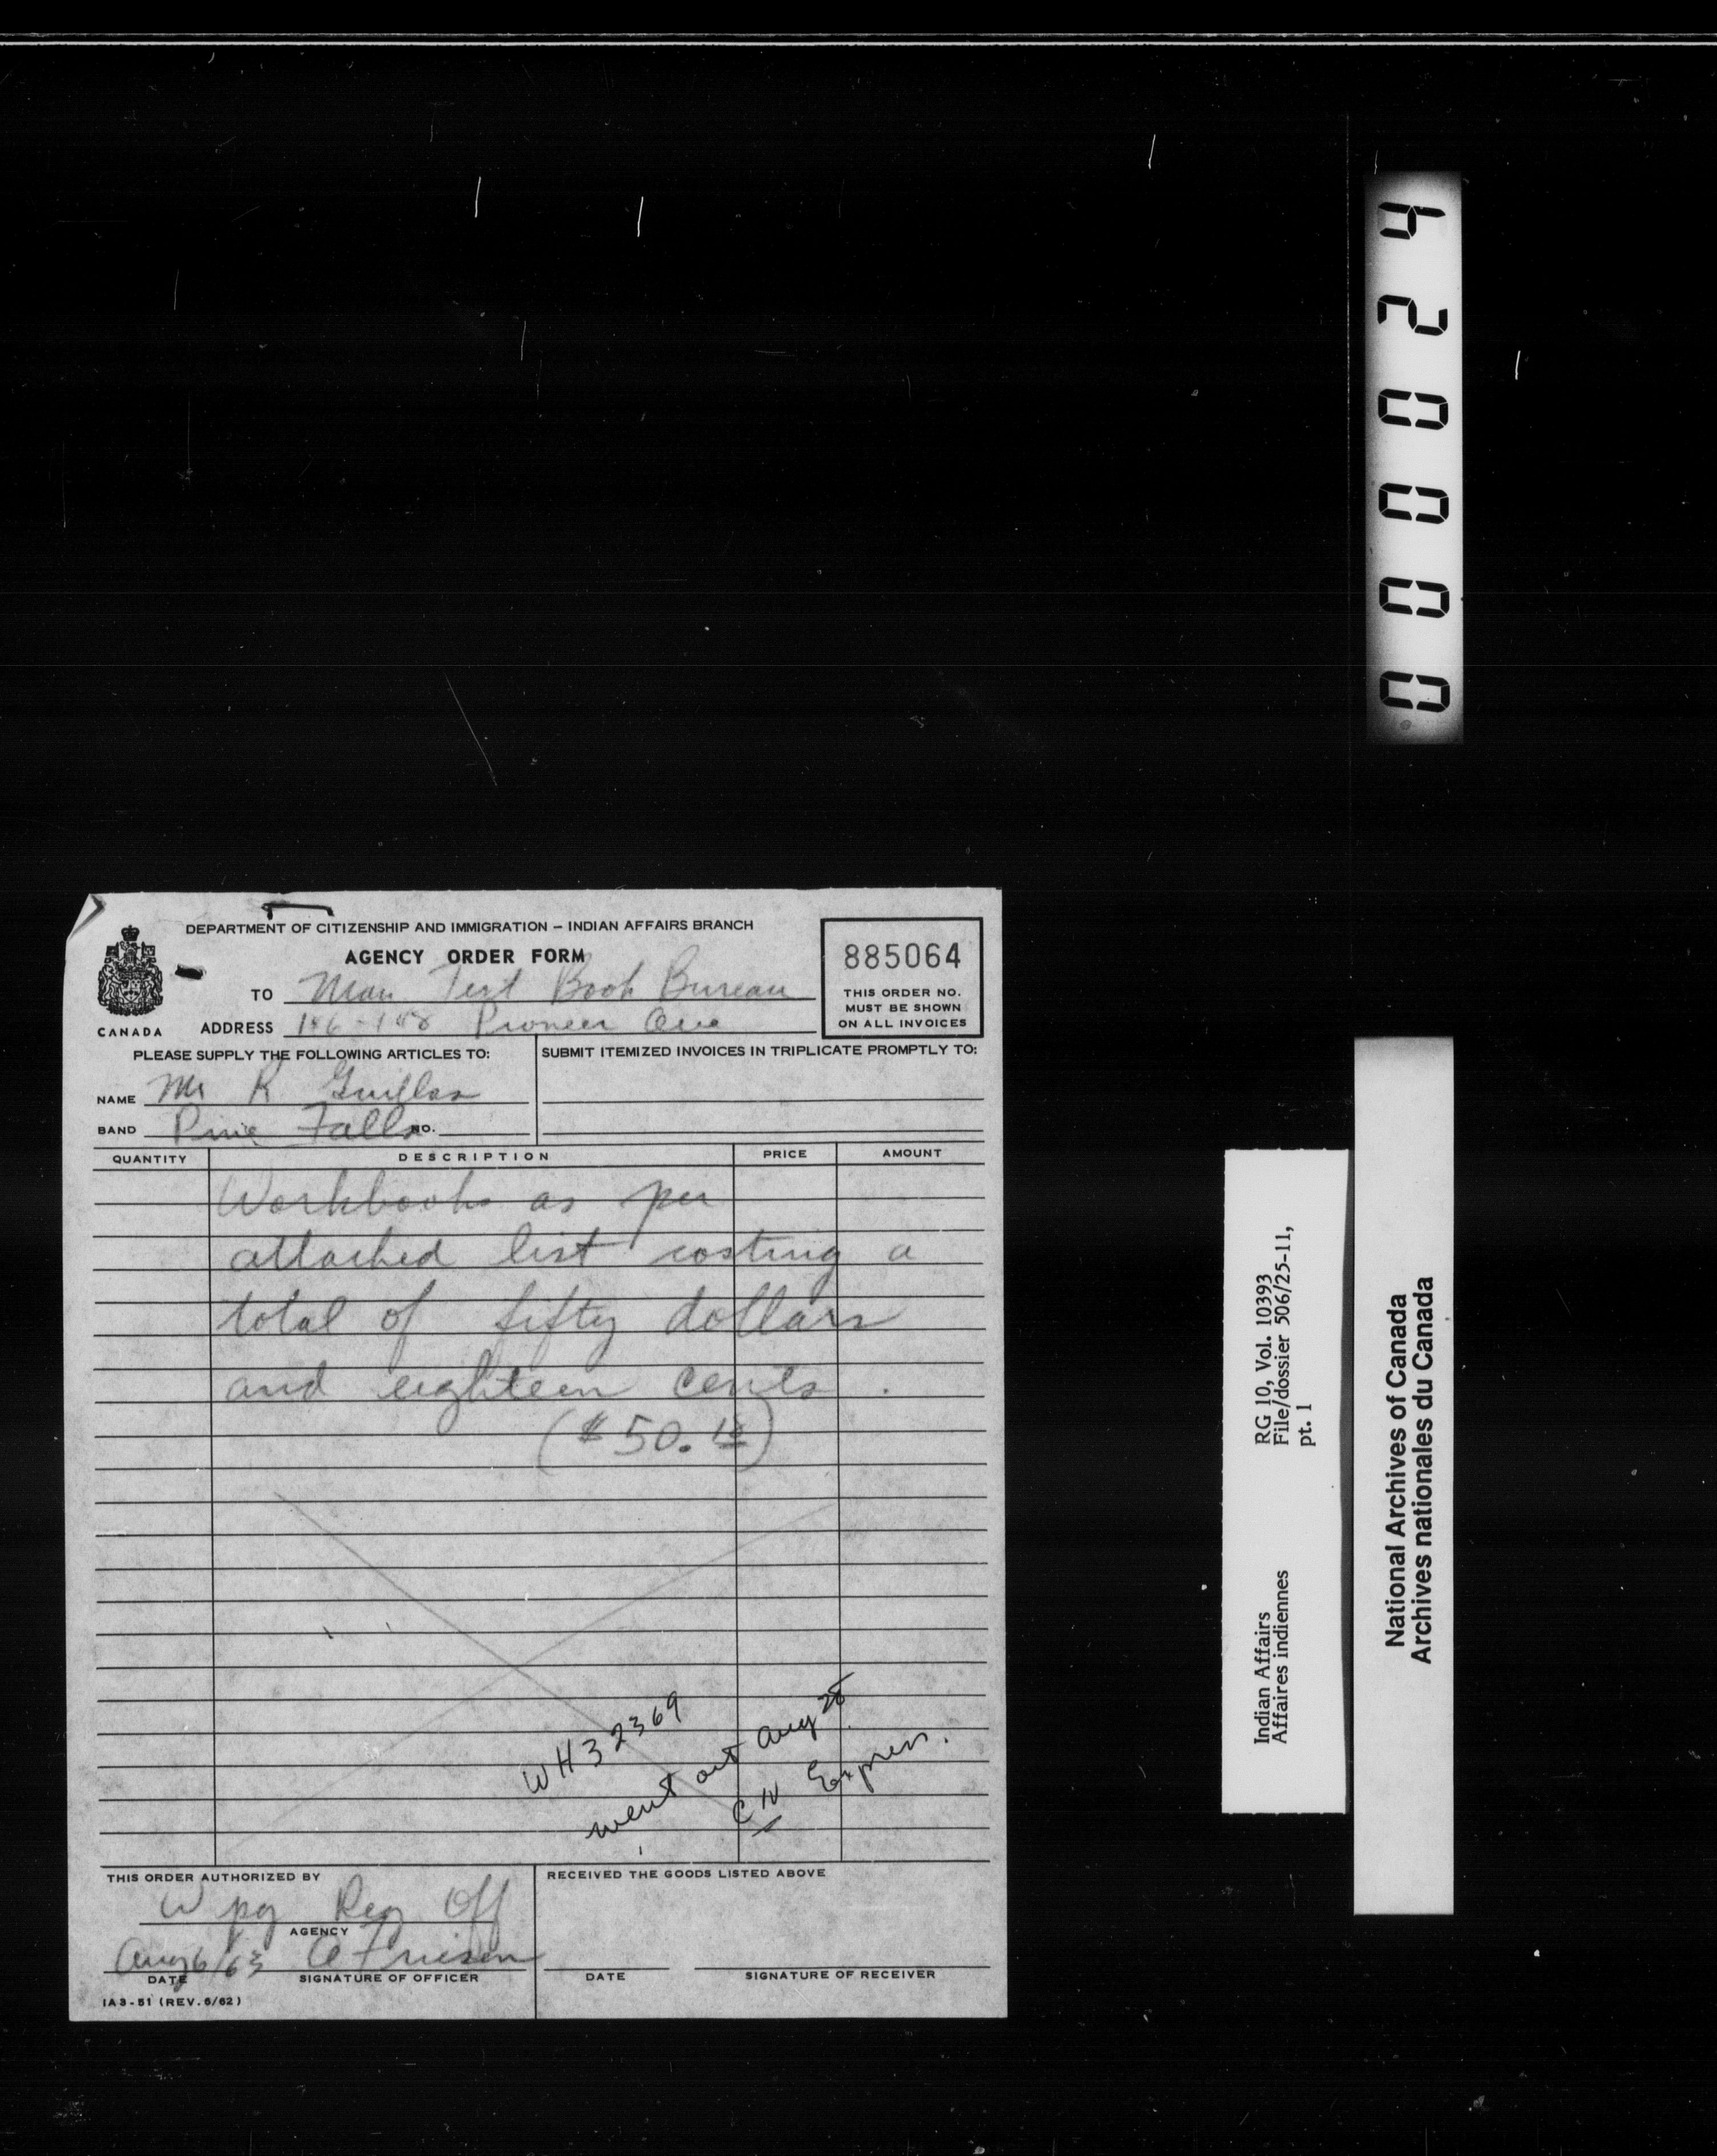 000024
DEPARTMENT OF CITIZENSHIP AND IMMIGRATION – INDIAN AFFAIRS BRANCH
AGENCY ORDER FORM
885064
THIS ORDER NO.
MUST BE SHOWN
ON ALL INVOICES
CANADA
TO Man Text Book Bureau
ADDRESS Pioneer Ave
PLEASE SUPPLY THE FOLLOWING ARTICLES TO:
SUBMIT ITEMIZED INVOICES IN TRIPLICATE PROMPTLY TO:
NAME Mr K
BAND Pine Falls NO.
QUANTITY DESCRIPTION PRICE AMOUNT
Workbooks as per
attached list costing a
total of fifty dollars
and eighteen cents.
($50.18)
WH32369
went out Aug 28
CN Express.
THIS ORDER AUTHORIZED BY
Wpg Reg Off
AGENCY
Aug 6/63 A Friesen
DATE SIGNATURE OF OFFICER
RECEIVED THE GOODS LISTED ABOVE
DATE SIGNATURE OF RECEIVER
IA 3-51 (REV. 6/62)
Indian Affairs RG 10, Vol. 10393
Affaires indiennes File/dossier 506/25-11,
pt. 1
National Archives of Canada
Archives nationales du Canada